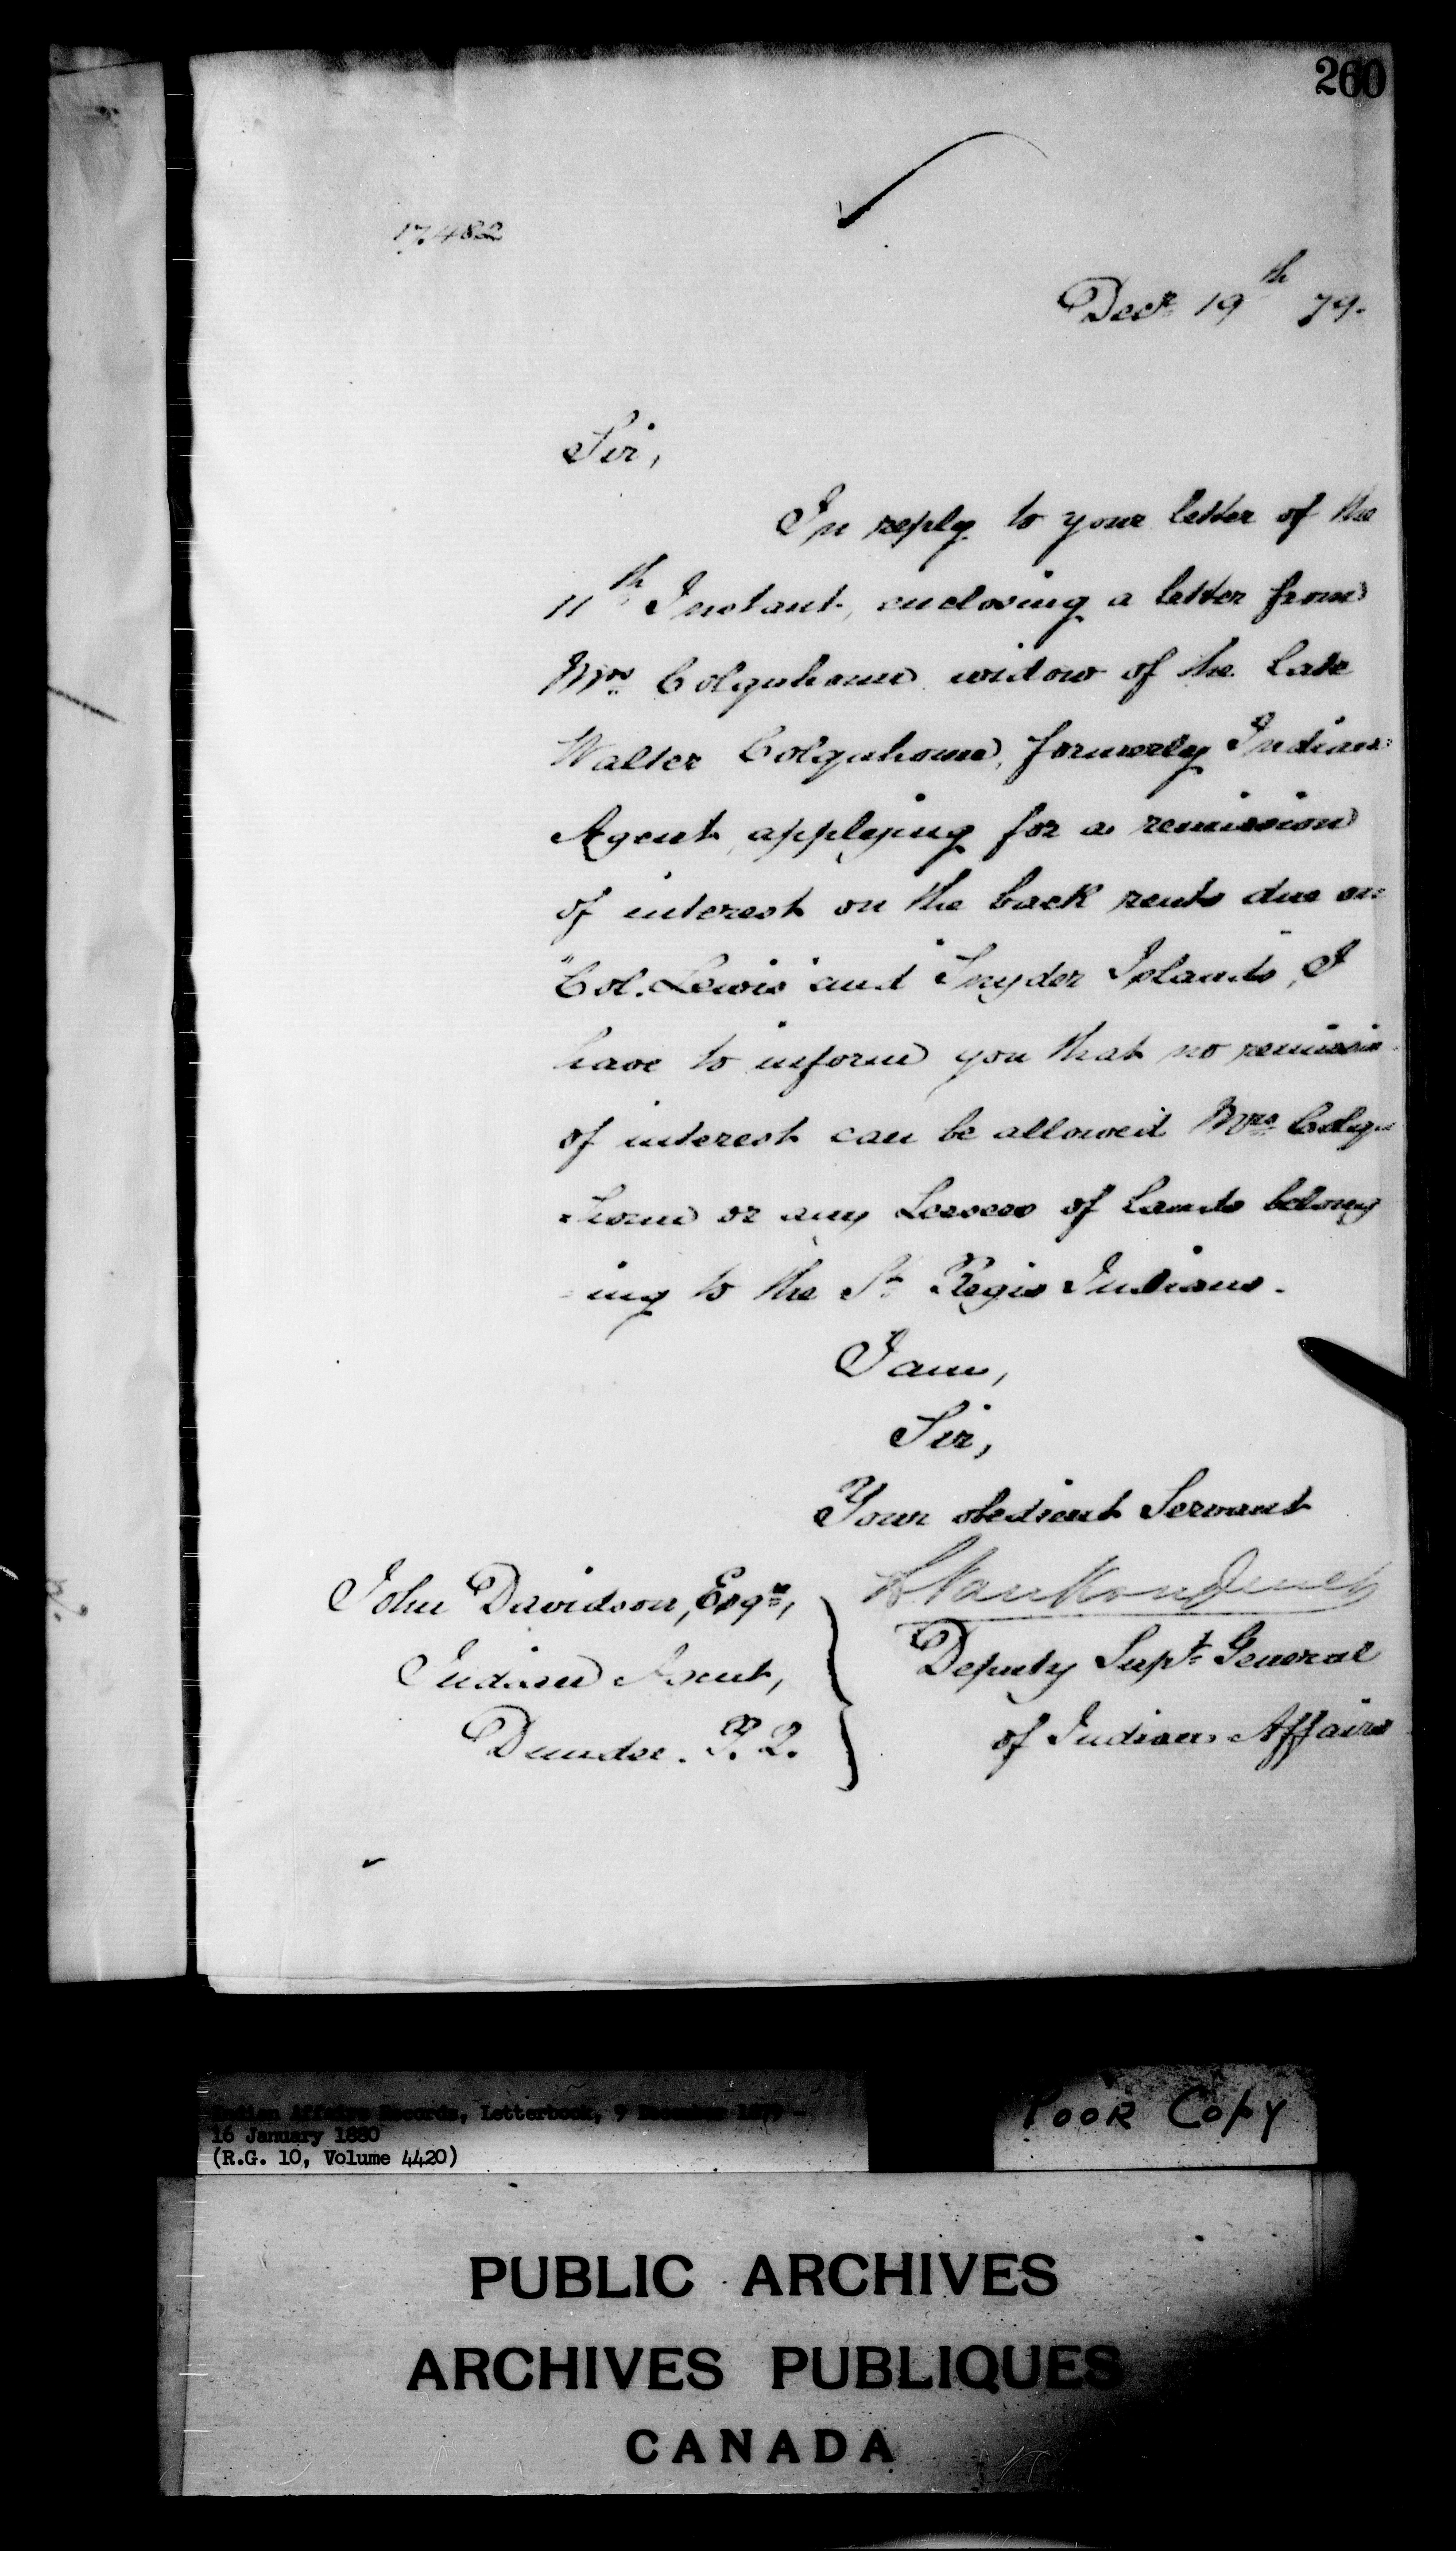 260
17.482
Decr 19th 79.
Sir,
In reply to your letter of the
11th Instant, enclosing a letter from
Mrs Colquhoun widow of the late
Walter Colquhoun, formerly Indian
Agent, applying for a remission
of interest on the back rents due on
"Col. Lewis" and "Snyder Islands, I
have to inform you that no remission
of interest can be allowed Mrs Colqu
-houn or any Lessees of lands belong
-ing to the St Regis Indians.
I am,
Sir,
Your obedient Servant
L VanKoughnet
John Davidson, Esqre,
Deputy Supt General
Indian Agent,
of Indian Affairs
Dundee. P.Q.
Indian Affairs Records, Letterbook, 9 December 1879 -
16 January 1880
(R.G. 10, Volume 4420)
Poor Copy
PUBLIC ARCHIVES
ARCHIVES PUBLIQUES
CANADA